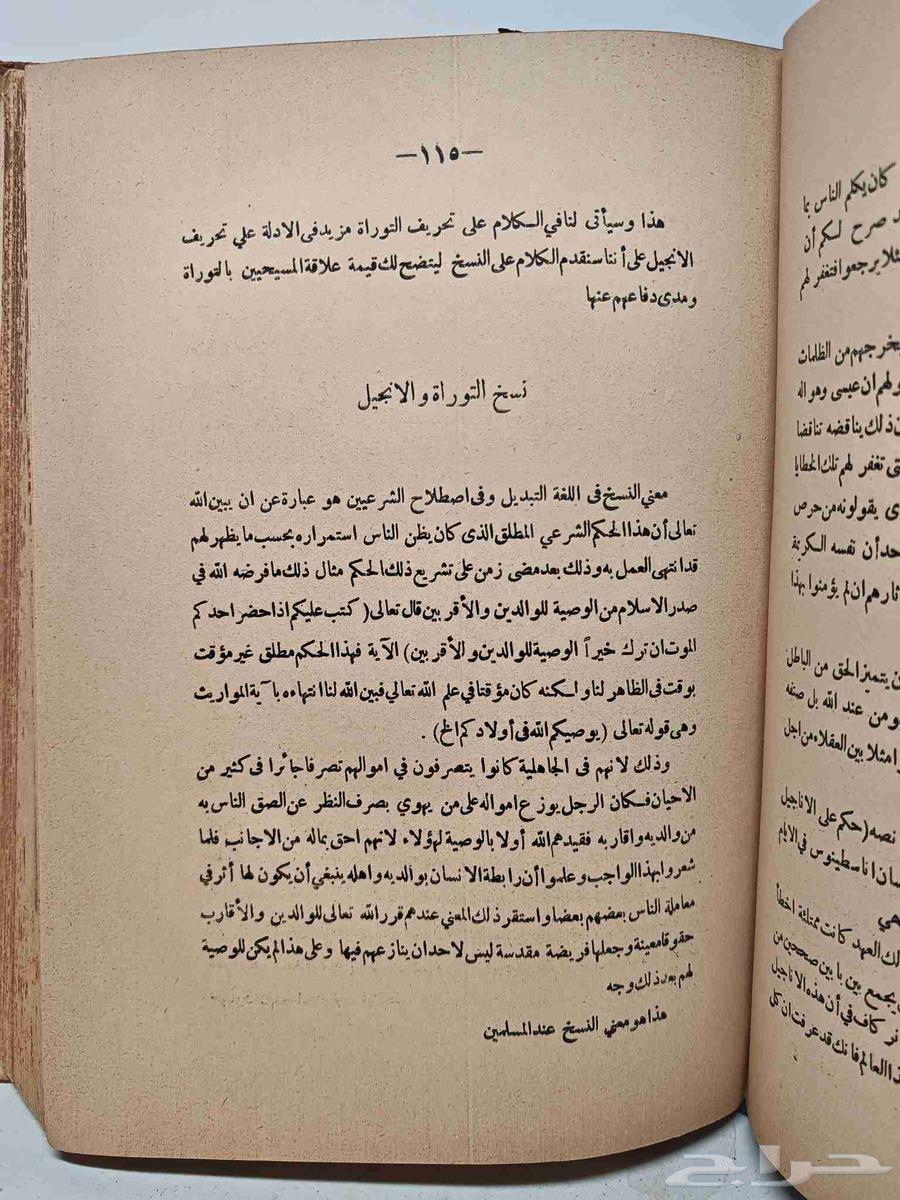 —١١٥—
هذا وسيأتى لنا في الكلام على تحريف التوراة مزيد فى الادلة علي تحريف
الانجيل على أننا سنقدم الكلام على النسخ ليتضح لك قيمة علاقة المسيحيين بالتوراة
ومدى دفاعهم عنها
نسخ التوراة والانجيل
معني النسخ فى اللغة التبديل وفى اصطلاح الشرعيين هو عبارة عن ان يبين الله
تعالى أن هذا الحكم الشرعي المطلق الذى كان يظن الناس استمراره بحسب ما يظهر لهم
قد انتهى العمل به وذلك بعد مضى زمن على تشريع ذلك الحكم مثال ذلك ما فرضه الله في
صدر الاسلام من الوصية للوالدين والأقربين قال تعالى (كتب عليكم اذا حضر احدكم
الموت ان ترك خيراً الوصية للوالدين والأقربين) الآية فهذا الحكم مطلق غير مؤقت
بوقت فى الظاهر لنا ولكنه كان مؤقتا في علم الله تعالي فبين الله لنا انتهاءه بآية المواريث
وهى قوله تعالى (يوصيكم الله فى أولادكم الخ) .
وذلك لانهم فى الجاهلية كانوا يتصرفون في اموالهم تصرفا جائرا فى كثير من
الاحيان فكان الرجل يوزع امواله على من يهوي بصرف النظر عن الصق الناس به
من والديه واقاربه فقيدهم الله أولا بالوصية لهؤلاء لانهم احق بماله من الاجانب فلما
شعروا بهذا الواجب وعلموا أن رابطة الانسان بوالديه واهله ينبغي أن يكون لها أثر في
معاملة الناس بعضهم بعضا واستقر ذلك المعني عندهم قرر الله تعالى للوالدين والأقارب
حقوقا معينة وجعلها فريضة مقدسة ليس لاحد ان ينازعهم فيها وعلى هذا لم يكن للوصية
لهم بعد ذلك وجه
هذا هو معني النسخ عند المسلمين
كان يكلم الناس بما
صرح لكم أن
يرجعوا فتغفر لهم
يخرجهم من الظلمات
ولهم ان عيسى وهو اله
ذلك يناقضه تناقضا
تغفر لهم تلك الخطايا
يقولونه من حرص
أن نفسه الكريمة
ان لم يؤمنوا بهذا
يتميز الحق من الباطل
من عند الله بل صنفه
امثلا بين العقلاء من اجل
نصه (حكم على الاناجيل
اناسطينوس في الايام
العهد كانت ممتلئة اخطأ
يجمع بين بابين صحيحين من
كاف في أن هذه الاناجيل
العالم فانك قد عرفت ان كل
حراج